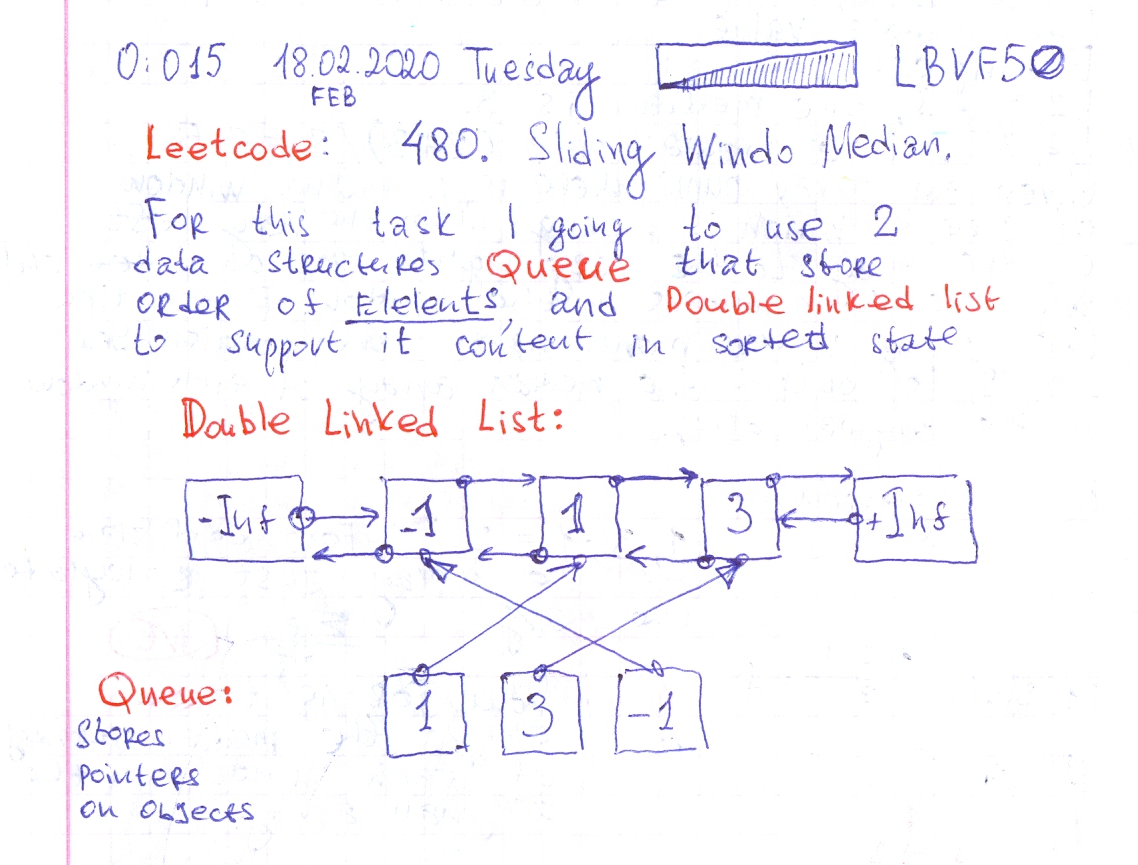 0:015 18.02.2020 Tuesday LBVF50
FEB
Leetcode: 480. Sliding Windo Median.
For this task I going to use 2
data structures Queue that store
order of Elelents, and Double linked list
to support it content in sorted state
Double Linked List:
-Inf -1 1 3 +Inf
1 3 -1
Queue:
Stores
pointers
on objects